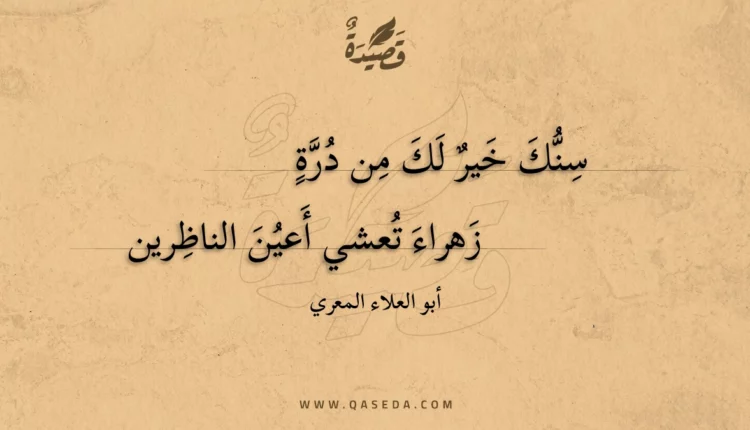 قَصِيدَةٌ
سِنُّكَ خَيرٌ لَكَ مِن دُرَّةٍ
زَهراءَ تُعشي أَعيُنَ الناظِرين
أبو العلاء المعري
WWW.QASEDA.COM